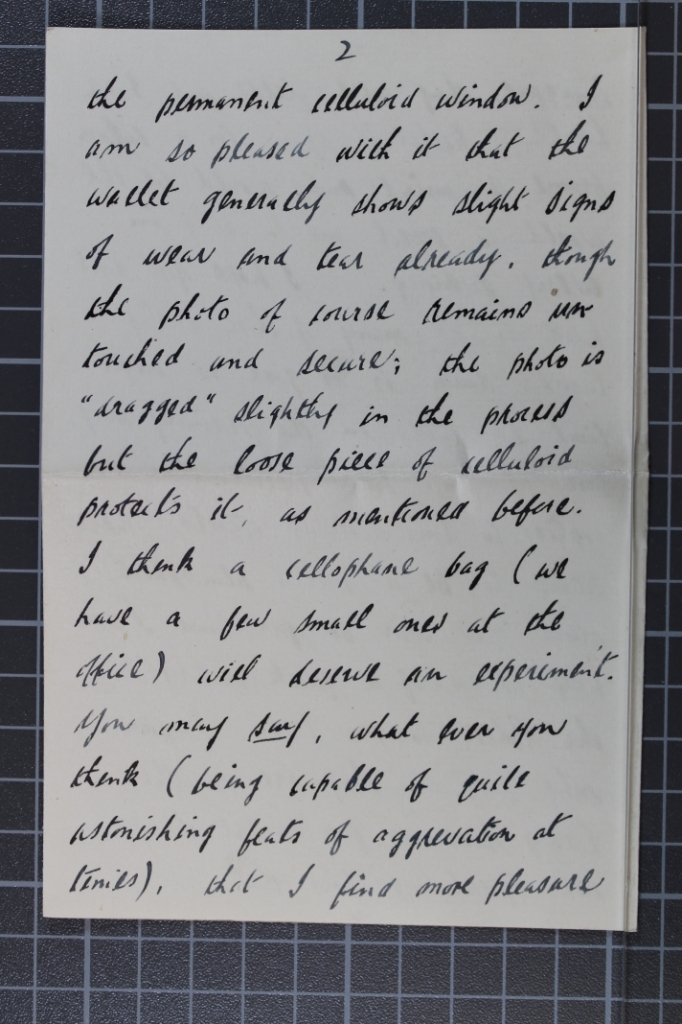 2
the permanent celluloid window. I
am so pleased with it that the
wallet generally shows slight signs
of wear and tear already, though
the photo of course remains un
touched and secure; the photo is
"dragged" slightly in the process
but the loose piece of celluloid
protects it, as mentioned before.
I think a cellophane bag (we
have a few small ones at the
office) will deserve an experiment.
You may say, what ever you
think (being capable of quite
astonishing feats of aggrevation at
times), that I find more pleasure